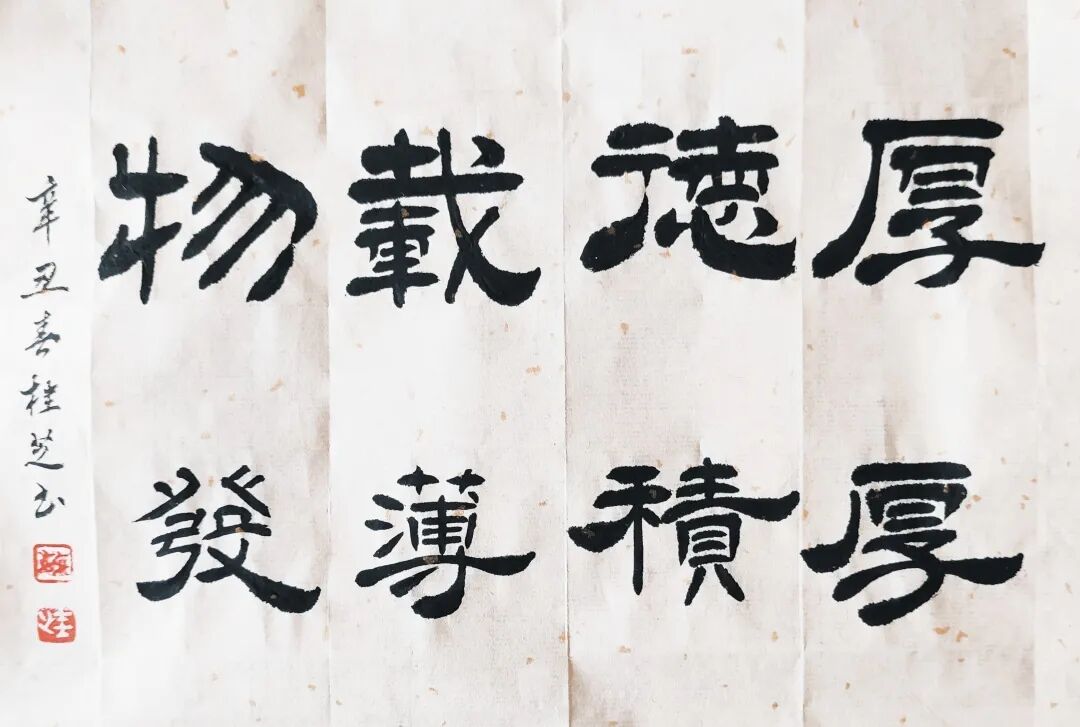 厚德載物
厚積薄發
辛丑春桂芝书